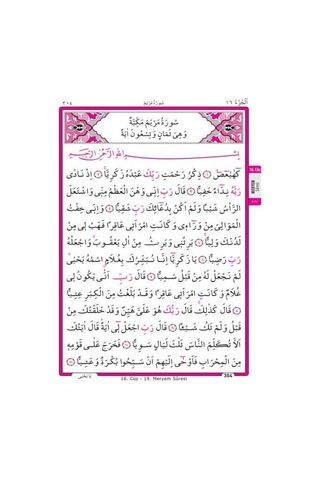 اَلْجُزْءُ ١٦
سُورَةُ مَرْيَمَ
٣٠٤
سُورَةُ مَرْيَمَ مَكِّيَّةٌ
وَهِيَ ثَمَانٍ وَتِسْعُونَ اٰيَةً
بِسْمِ اللّٰهِ الرَّحْمٰنِ الرَّحِيمِ
كٓهٰيٰعٓصٓ ﴿١﴾ ذِكْرُ رَحْمَتِ رَبِّكَ عَبْدَهُ زَكَرِيَّا ﴿٢﴾ اِذْ نَادٰى
رَبَّهُ نِدَٓاءً خَفِيًّا ﴿٣﴾ قَالَ رَبِّ اِنِّي وَهَنَ الْعَظْمُ مِنِّي وَاشْتَعَلَ
الرَّأْسُ شَيْبًا وَلَمْ اَكُنْ بِدُعَٓائِكَ رَبِّ شَقِيًّا ﴿٤﴾ وَاِنِّي خِفْتُ
الْمَوَالِيَ مِنْ وَرَٓائِي وَكَانَتِ امْرَاَتِي عَاقِرًا فَهَبْ لِي مِنْ
لَدُنْكَ وَلِيًّا ﴿٥﴾ يَرِثُنِي وَيَرِثُ مِنْ اٰلِ يَعْقُوبَ وَاجْعَلْهُ
رَبِّ رَضِيًّا ﴿٦﴾ يَا زَكَرِيَّٓا اِنَّا نُبَشِّرُكَ بِغُلَامٍ اسْمُهُ يَحْيٰى
لَمْ نَجْعَلْ لَهُ مِنْ قَبْلُ سَمِيًّا ﴿٧﴾ قَالَ رَبِّ اَنّٰى يَكُونُ لِي
غُلَامٌ وَكَانَتِ امْرَاَتِي عَاقِرًا وَقَدْ بَلَغْتُ مِنَ الْكِبَرِ عِتِيًّا
﴿٨﴾ قَالَ كَذٰلِكَ قَالَ رَبُّكَ هُوَ عَلَيَّ هَيِّنٌ وَقَدْ خَلَقْتُكَ مِنْ
قَبْلُ وَلَمْ تَكُ شَيْئًا ﴿٩﴾ قَالَ رَبِّ اجْعَلْ لِٓي اٰيَةً قَالَ اٰيَتُكَ
اَلَّا تُكَلِّمَ النَّاسَ ثَلٰثَ لَيَالٍ سَوِيًّا ﴿١٠﴾ فَخَرَجَ عَلٰى قَوْمِهِ
مِنَ الْمِحْرَابِ فَاَوْحٰٓى اِلَيْهِمْ اَنْ سَبِّحُوا بُكْرَةً وَعَشِيًّا ﴿١١﴾
يَا يَحْيٰى
16. Cüz - 19. Meryem Sûresi
304